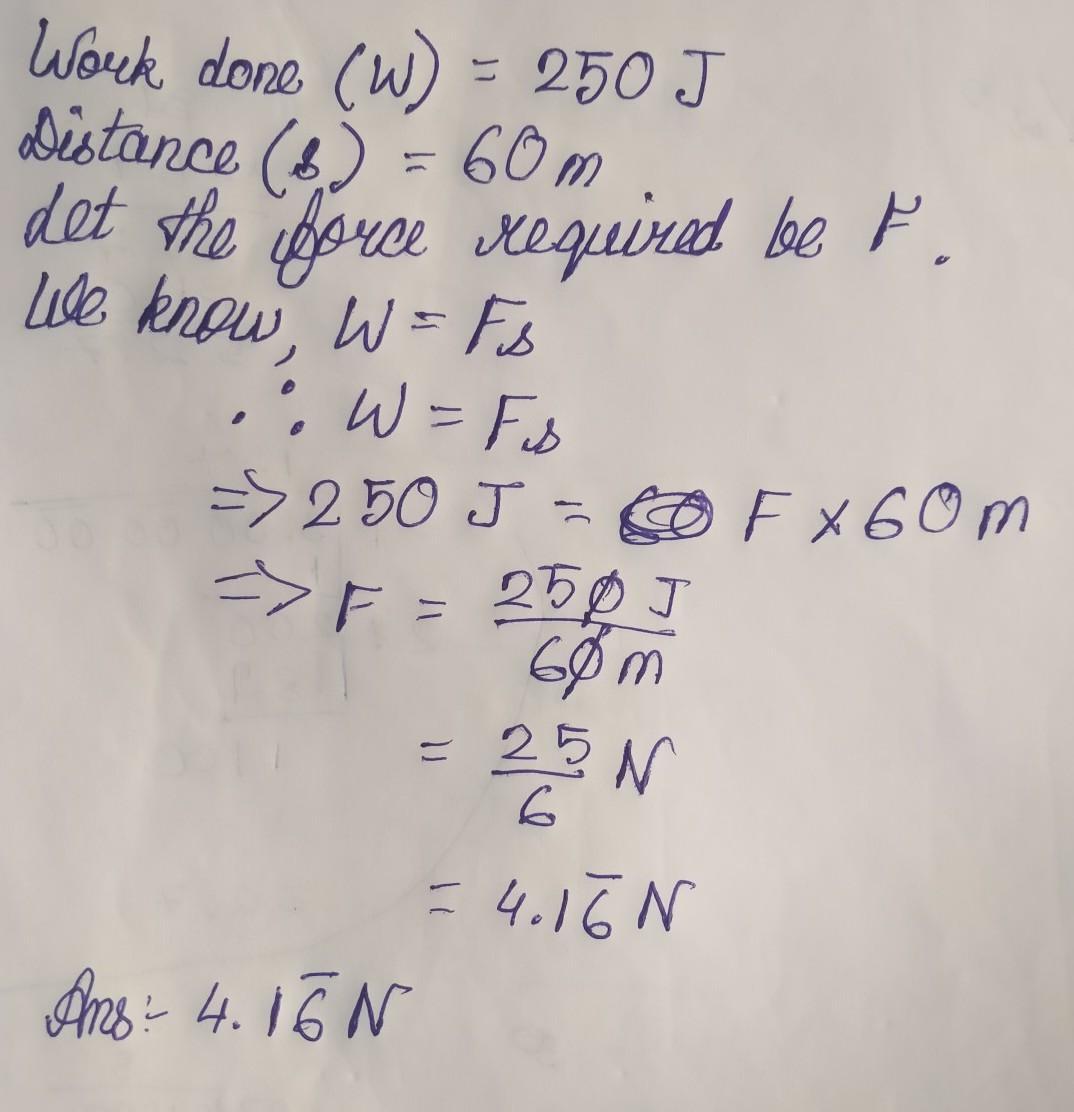 Work done (W) = 250 J
Distance (s) = 60 m
Let the force required be F.
We know, W = Fs
∴ W = Fs
=> 250 J = F × 60 m
=> F = 250 J / 60 m
= 25/6 N
= 4.16̅ N
Ans:- 4.16̅ N